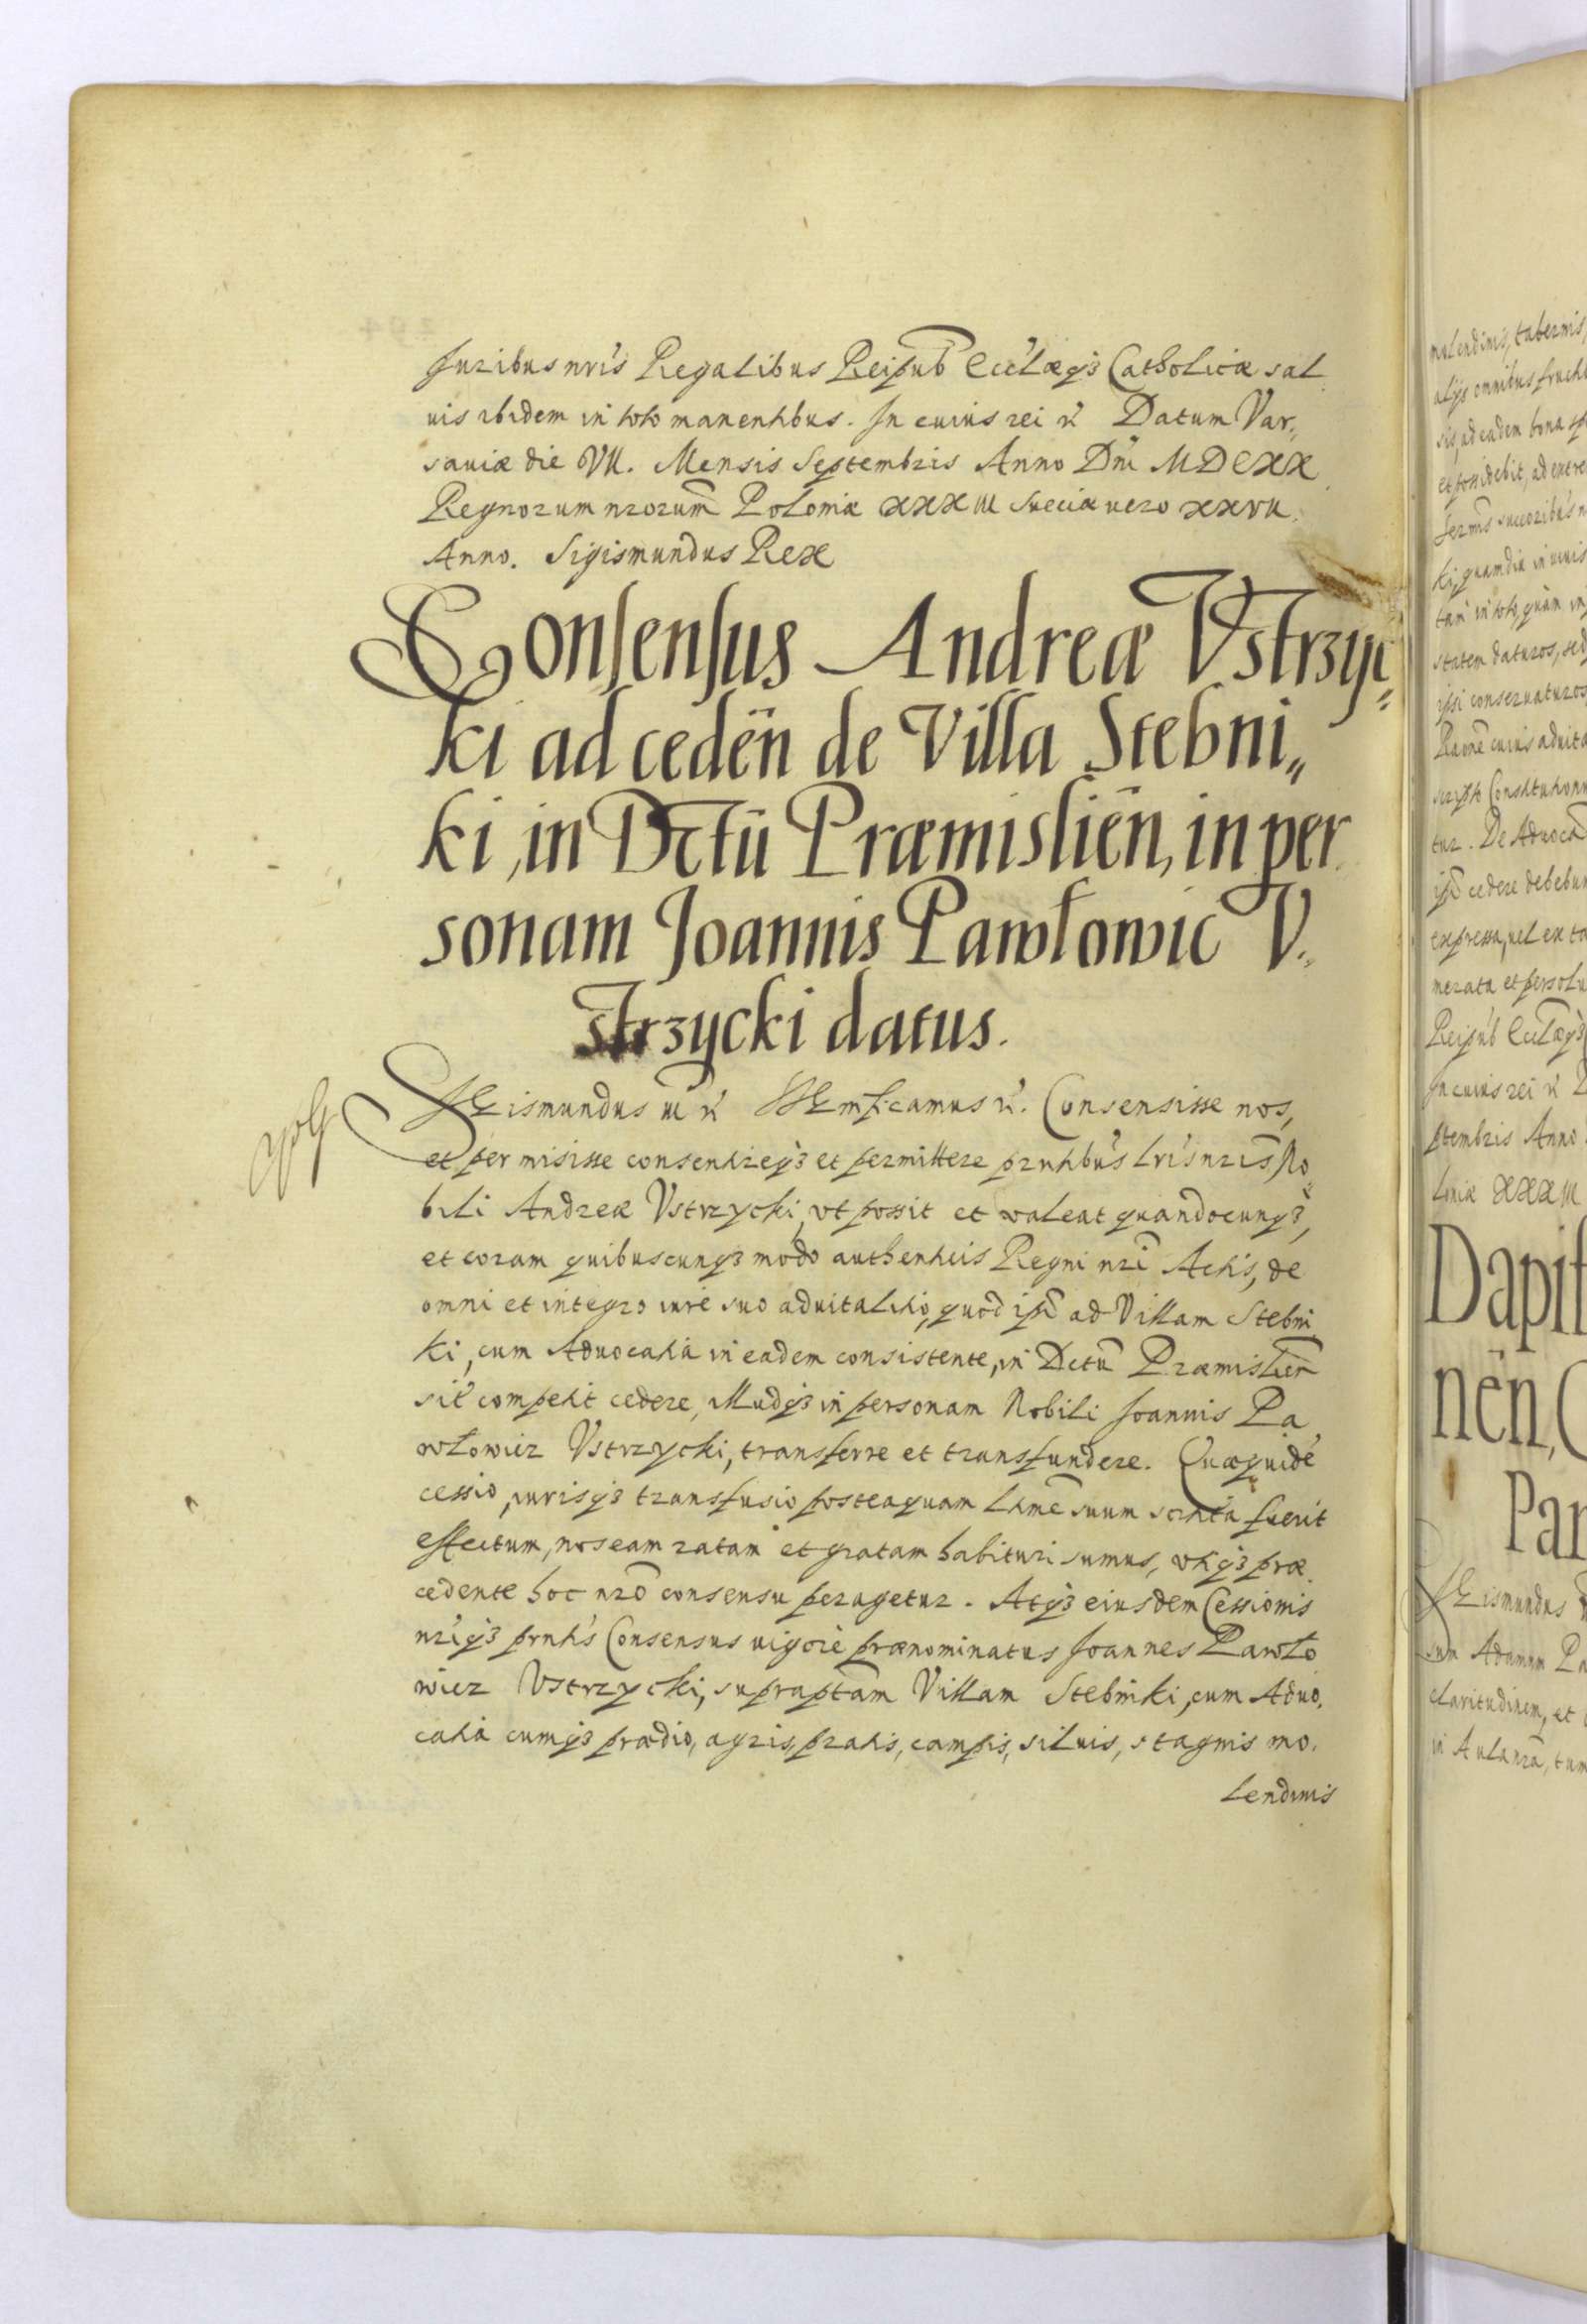 Juribus nr̃is Regalibus Reipub̃ Eccl̃æqꝫ Catholicæ sal
uis ibidem in toto manentibus. In cuius rei &c Datum Var„
sauiæ die VII. Mensis Septembris Anno Dñi MDCXX
Regnorum nrorum̃ Poloniæ XXXIII Sueciæ uero XXVII.
Anno. Sigismundus Rex
Consensus Andreæ Vstrzyc„
ki ad ceden̄ de Villa Stebni„
ki, in Dctū Præmislien̄, in per
sonam Joannis Pawłowic V„
strzycki datus.
SIGismundus III &c SIGnificamus &c. Consensisse nos,
et per misisse consentireqꝫ et permittere prntibus lris nris No„
bili Andreæ Vstrzycki, vt possit et valeat quandocunqꝫ,
et coram quibuscunqꝫ modo authenticis Regni nri Actis, de
omni et integro iure suo aduitalitio, quod ipsi ad Villam Stebni
ki, cum Aduocatia in eadem consistente, in Dctū Præmislien̄
sit̃ competit cedere, illudqꝫ in personam Nobili Joannis Pa
włowicz Vstrzycki, transferre et transfundere. Quæquidē
cessio, iurisqꝫ transfusio posteaquam ltimē suum sortita fuerit
effectum, nos eam ratam et gratam habituri sumus, vtiqꝫ præ
cedente hoc nrō consensu peragetur. Atqꝫ eiusdem Cessionis
nriqꝫ prntis Consensus uigore prænominatus Joannes Pawło
wicz Vstrzycki, supraptam Villam Stebniki, cum Aduo,
catia cumqꝫ prædio, agris, pratis, campis, siluis, stagnis mo,
lendinis
molendinis, tabernis,
alijs omnibus fructi
sis, ad eadem bona
et possidebit, ad extre
ki, quamdiu in viuis
tam in toto, quam in
statem daturos, sed
ipsi conseruaturos
cuius aduita
tur. De Aduoca
ipsi cedere debebun
expressa, uel ex
merata et persolu
Reipub Ecclæqꝫ
In cuius rei &c D
ptembris Anno
loniæ XXXIII
Dapif
nēn, C
Par
SIGismundus
sum Adamum Pa
claritudinem, et
in Aula nrā, tum